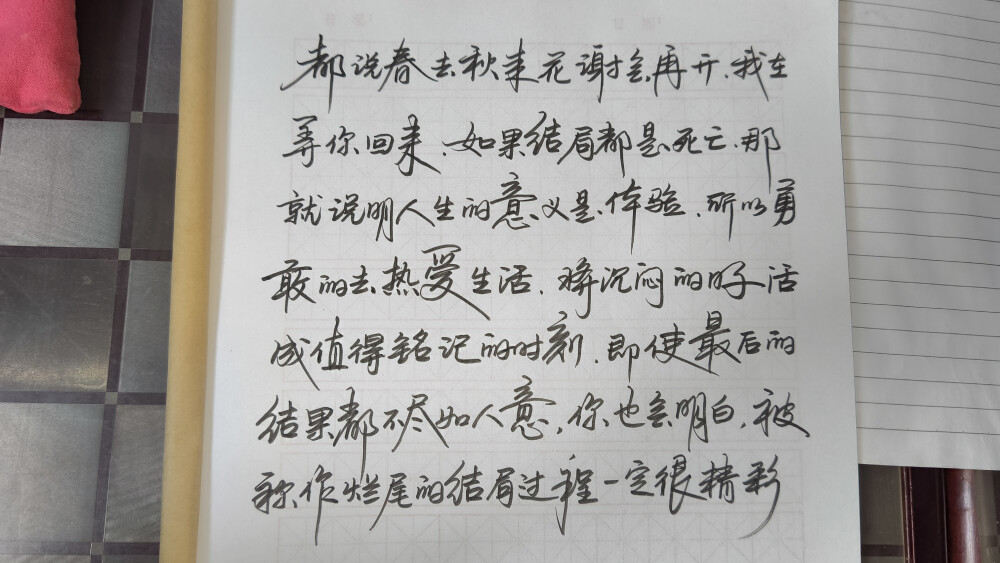 都说春去秋来花谢会再开.我在
等你回来.如果结局都是死亡.那
就说明人生的意义是体验.所以勇
敢的去热爱生活.将沉闷的日子活
成值得铭记的时刻.即使最后的
结果都不尽如人意,你也会明白,被
称作烂尾的结局过程一定很精彩